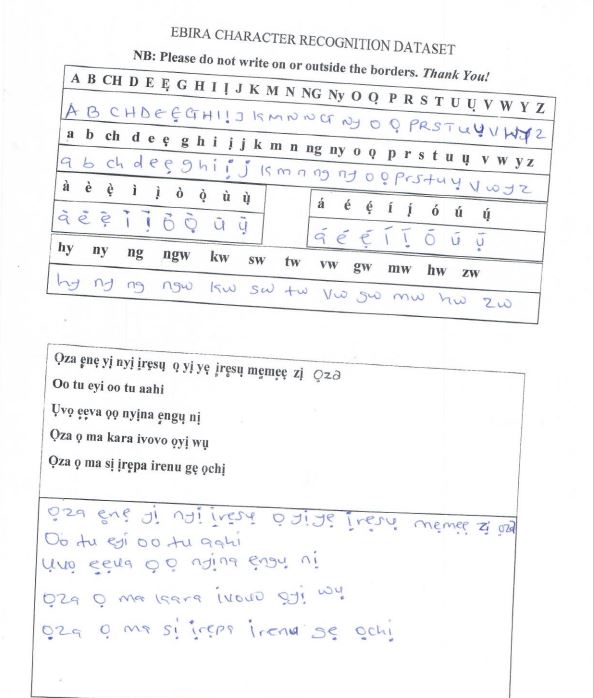 EBIRA CHARACTER RECOGNITION DATASET
NB: Please do not write on or outside the borders. Thank You!
A B CH D E Ẹ G H I Ị J K M N NG Ny O Ọ P R S T U Ụ V W Y Z
A B C H D E Ẹ G H I Ị J K M N N G Ny O Ọ P R S T U Ụ V W Y Z
a b ch d e ẹ g h i ị j k m n ng ny o ọ p r s t u ụ v w y z
a b ch d e ẹ g h i ị j k m n ng ny o ọ p r s t u ụ v w y z
à è ẹ̀ ì ị̀ ò ọ̀ ù ụ̀
à è ẹ̀ ì ị̀ ò ọ̀ ù ụ̀
á é ẹ́ í ị́ ó ú ụ́
á é ẹ́ í ị́ ó ú ụ́
hy ny ng ngw kw sw tw vw gw mw hw zw
hy ny ng ngw kw sw tw vw gw mw hw zw
Ọza ẹnẹ yị nyị ịrẹsụ ọ yị yẹ ịrẹsụ mẹmẹẹ zị ọza
Oo tu eyi oo tu aahi
Ụvọ ẹẹva ọọ nyịna ẹngụ nị
Ọza ọ ma kara ivovo ọyị wụ
Ọza ọ ma sị ịrẹpa irenu gẹ ọchị
Ọza ẹnẹ yị nyị ịrẹsụ ọ yị yẹ ịrẹsụ mẹmẹẹ zị ọza
Oo tu eyi oo tu aahi
Ụvọ ẹẹva ọ ọ nyịna ẹngụ nị
Ọza ọ ma kara ivovo ọyị wụ
Ọza ọ ma sị ịrẹpa irenu gẹ ọchị